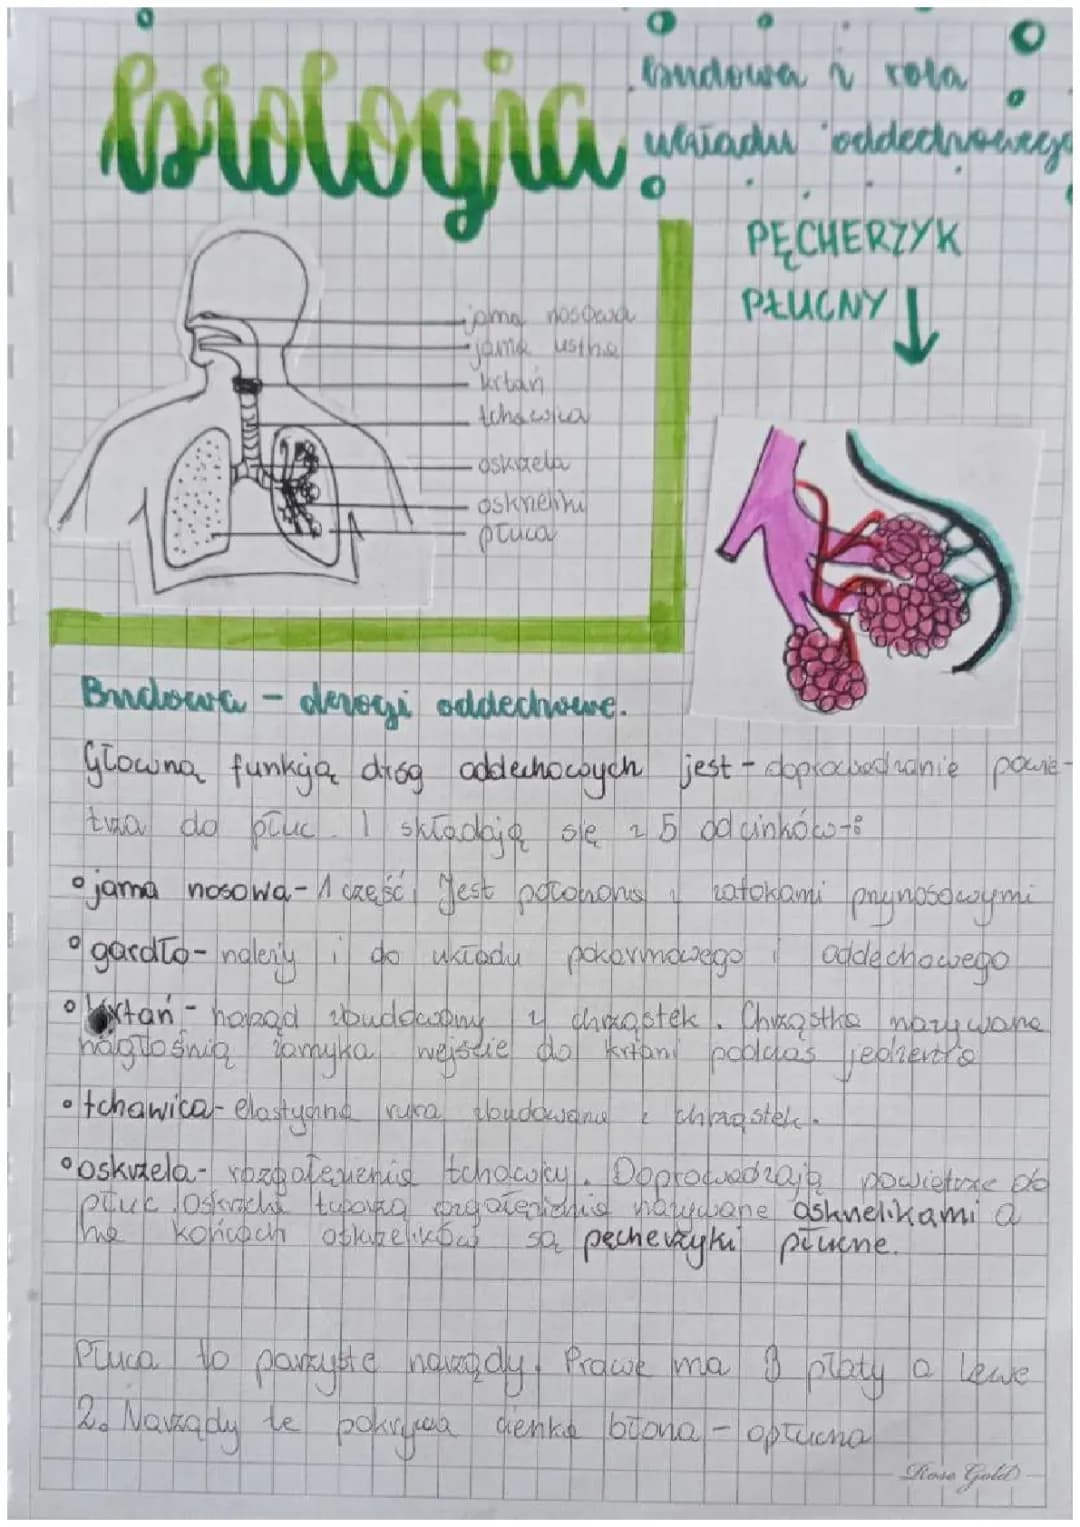 biologia
Budowa i rola
układu oddechowego
PĘCHERZYK
PŁUCNY
jama nosowa
jama ustna
krtań
tchawica
oskrzela
oskrzeliki
płuca
Budowa - drogi oddechowe.
Główną funkcją dróg oddechowych jest - doprowadzanie powie-
trza do płuc. I składają się z 5 odcinków:
jama nosowa - 1 część. Jest połączona z zatokami przynosowymi
gardło - należy i do układu pokarmowego i oddechowego
krtań - narząd zbudowany z chrząstek. Chrząstka nazywana
nagłośnią zamyka wejście do krtani podczas jedzenia
tchawica - elastyczna rura zbudowana z chrząstek.
oskrzela - rozgałęzienia tchawicy. Doprowadzają powietrze do
płuc. oskrzela tworzą rozgałęzienia nazywane oskrzelikami a
na końcach oskrzelików są pęcherzyki płucne.
Płuca to parzyste narządy. Prawe ma 3 płaty a lewe
2. Narządy te pokrywa cienka błona - opłucna
Rose Gold